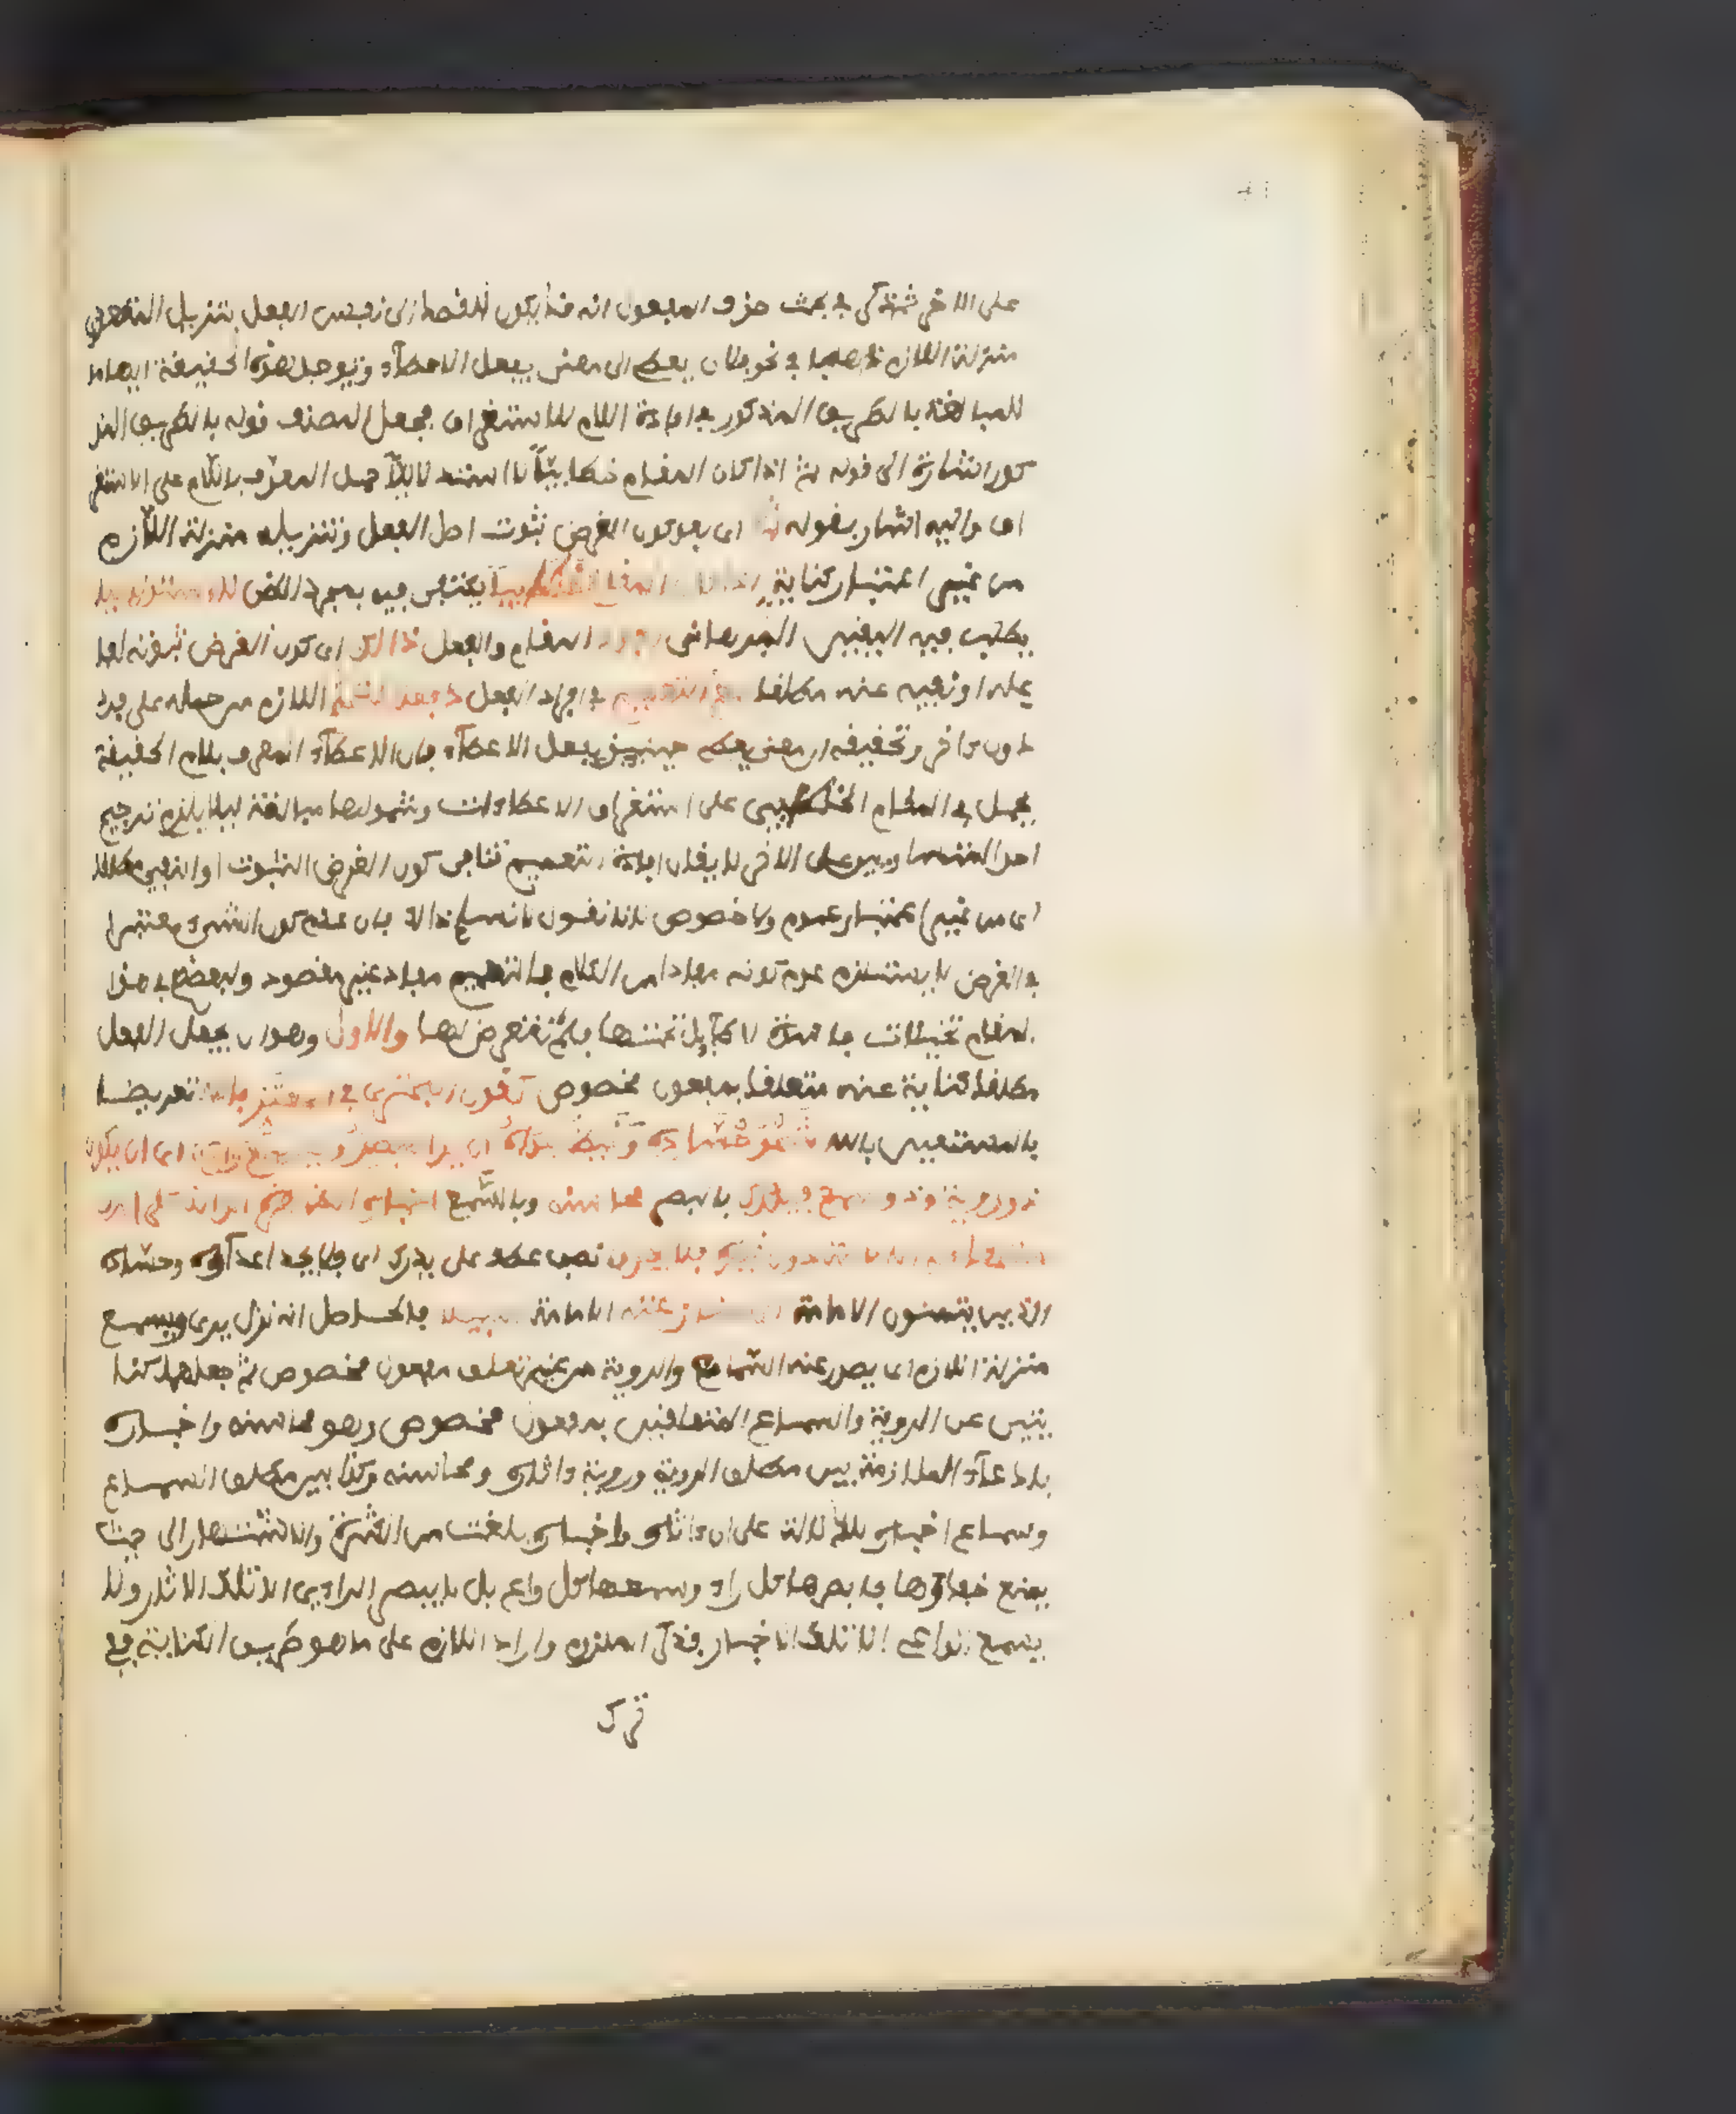 على الاخر ثم ذكر في بحث حذف المفعول انه قد يكون للقصد الى نفس الفعل بتنزيل المتعدي
منزلة اللازم ذهابا في نحو فلان يعطي الى معنى يفعل الاعطاء ويوجد هذه الحقيقة ايهاما
للمبالغة بالطريق المذكور في افادة اللام للاستغراق فجعل المصنف قوله بالطريق المذ
كور اشارة الى قوله ثم اذا كان المقام خطابيا لا استدلاليا حمل المعرف باللام على الاستغر
اق واليه اشار بقوله ثم اي بعد كون الغرض ثبوت اصل الفعل وتنزيله منزلة اللازم
من غير اعتبار كناية اذا كان المقام خطابيا يكتفى فيه بمجرد الظن لا استدلاليا
يطلب فيه اليقين البرهاني افاد المقام والفعل ذالك اي كون الغرض ثبوته لفا
عله او نفيه عنه مطلقا مع التعميم في افراد الفعل دفعا للتحكم اللازم من حمله على فرد
دون اخر وتحقيقه ان معنى يعطي حينئذ يفعل الاعطاء فان الاعطاء المعرف بلام الحقيقة
يحمل في المقام الخطابي على استغراق الاعطاءات وشمولها مبالغة ليلا يلزم ترجيح
احد المتساويين على الاخر لا يقال افادة التعميم تنافي كون الغرض الثبوت او النفي مطلقا
اي من غير اعتبار عموم ولا خصوص لانا نقول لا نسلم ذالك فان عدم كون الشيء معتبرا
في الغرض لا يستلزم عدم كونه مفادا من الكلام فالتعميم مفاد غير مقصود ولبعضهم في هذا
المقام تخيلات فاسدة لا طايل تحتها فلم نتعرض لها والاول وهو ان يجعل الفعل
مطلقا كناية عنه متعلقا بمفعول مخصوص كقول البحتري في المعتز بالله تعريضا
بالمستعين بالله شجو حساده وغيظ عداه ان يرى مبصر ويسمع واع اي ان يكون
ذو روية وذو سمع فيدرك بالبصر محاسنه وبالسمع اخباره الظاهرة الدالة على
فلا يجدوا نصب عطف على يدرك اي فلا يجد اعداوه وحساده
الذين يتمنون الامامة الى منازعته الامامة سبيلا فالحاصل انه نزل يرى ويسمع
منزلة اللازم اي يصدر عنه السماع والروية من غير تعلق بمفعول مخصوص ثم جعلهما كنا
يتين عن الروية والسماع المتعلقين بمفعول مخصوص وهو محاسنه واخباره
بادعاء الملازمة بين مطلق الروية وروية اثاره ومحاسنه وكذا بين مطلق السماع
وسماع اخباره للدلالة على ان اثاره واخباره بلغت من الكثرة والاشتهار الى حيث
يمتنع خفاوها فابصرها كل راء وسمعها كل واع بل لا يبصر الراءي الا تلك الاثار ولا
يسمع الواعي الا تلك الاخبار فذكر الملزوم واراد اللازم على ما هو طريق الكناية ففي
ترك